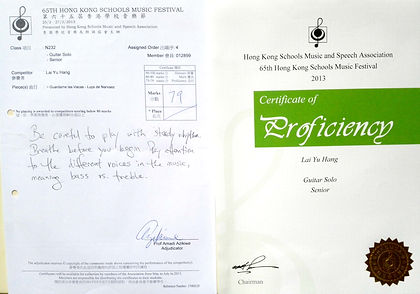 65TH HONG KONG SCHOOLS MUSIC FESTIVAL
第六十五屆香港學校音樂節
Presented by Hong Kong Schools Music and Speech Association
Class 項目: N232
- Guitar Solo
- Senior
Assigned Order 出場序: 4
Member 會員: 012899
Competitor
參賽者
Lai Yu Hang
Piece(s) 曲目: Guardame las Vacas - Luys de Narvaez
Marks
79
* Place
Be careful to play with steady rhythm.
Breathe before you begin. Pay attention
to the different voices in the music,
meaning bass vs. treble.
Prof Amadi Azikiwe
Adjudicator
Hong Kong Schools Music and Speech Association
65th Hong Kong Schools Music Festival
2013
Certificate of
Proficiency
Lai Yu Hang
Guitar Solo
Senior
Chairman